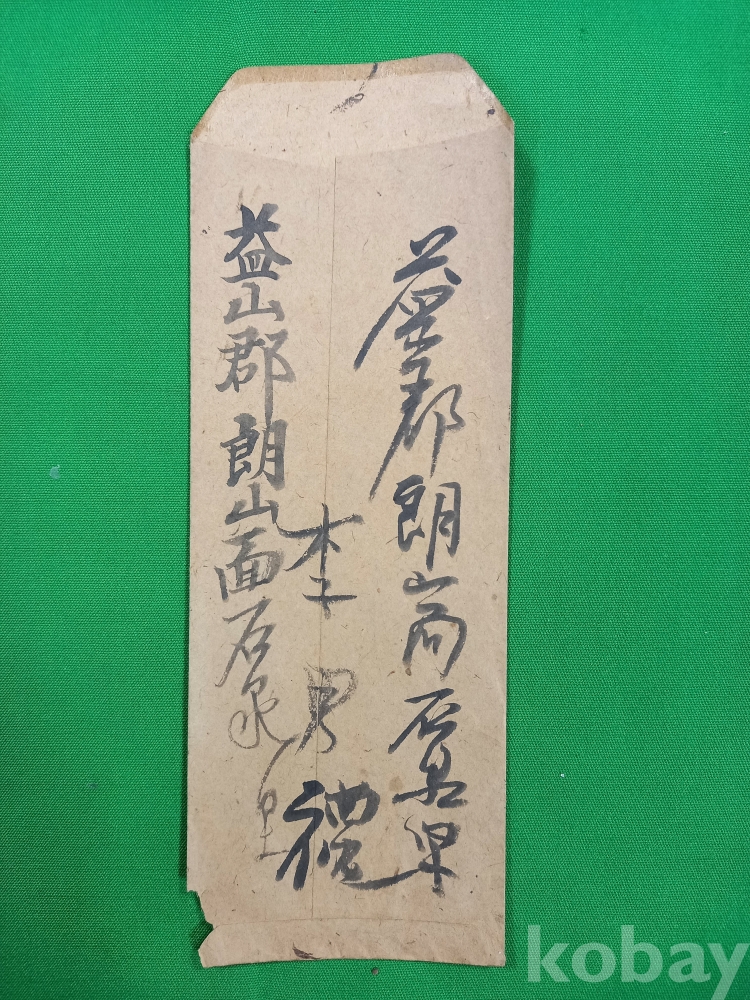 益山郡朗山面石泉里
李男禮
益山郡朗山面石泉里
kobay